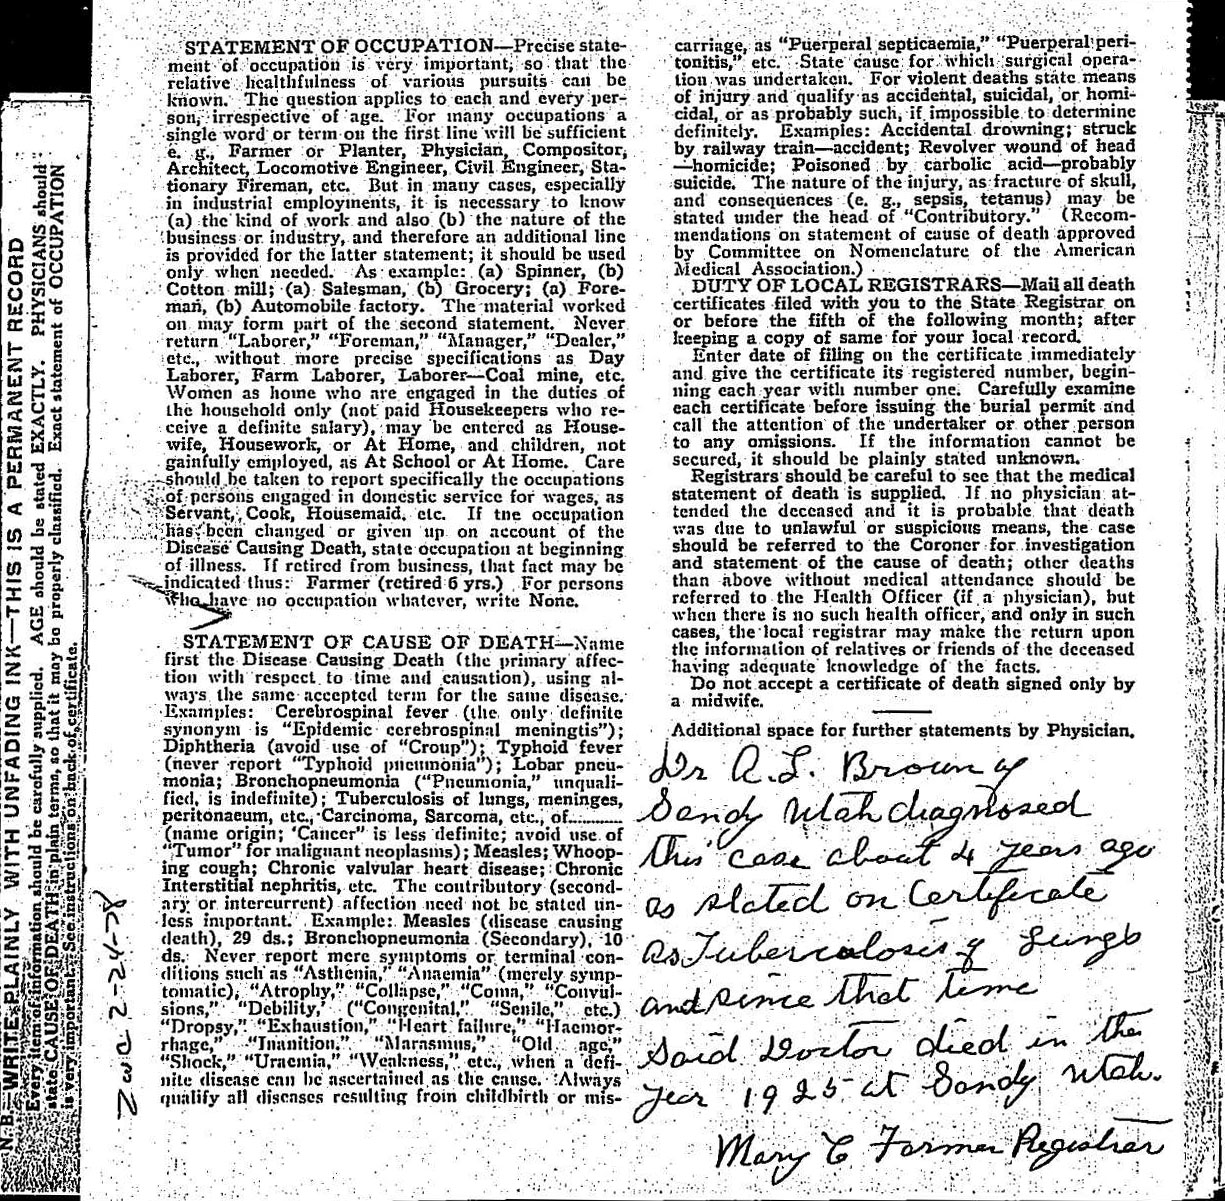 STATEMENT OF OCCUPATION—Precise state-
ment of occupation is very important, so that the
relative healthfulness of various pursuits can be
known. The question applies to each and every per-
son, irrespective of age. For many occupations a
single word or term on the first line will be sufficient
e. g., Farmer or Planter, Physician, Compositor,
Architect, Locomotive Engineer, Civil Engineer, Sta-
tionary Fireman, etc. But in many cases, especially
in industrial employments, it is necessary to know
(a) the kind of work and also (b) the nature of the
business or industry, and therefore an additional line
is provided for the latter statement; it should be used
only when needed. As example: (a) Spinner, (b)
Cotton mill; (a) Salesman, (b) Grocery; (a) Fore-
man, (b) Automobile factory. The material worked
on may form part of the second statement. Never
return "Laborer," "Foreman," "Manager," "Dealer,"
etc., without more precise specifications as Day
Laborer, Farm Laborer, Laborer—Coal mine, etc.
Women as home who are engaged in the duties of
the household only (not paid Housekeepers who re-
ceive a definite salary), may be entered as House-
wife, Housework, or At Home, and children, not
gainfully employed, as At School or At Home. Care
should be taken to report specifically the occupations
of persons engaged in domestic service for wages, as
Servant, Cook, Housemaid, etc. If the occupation
has been changed or given up on account of the
Disease Causing Death, state occupation at beginning
of illness. If retired from business, that fact may be
indicated thus: Farmer (retired 6 yrs.) For persons
who have no occupation whatever, write None.
STATEMENT OF CAUSE OF DEATH—Name
first the Disease Causing Death (the primary affec-
tion with respect to time and causation), using al-
ways the same accepted term for the same disease.
Examples: Cerebrospinal fever (the only definite
synonym is "Epidemic cerebrospinal meningtis");
Diphtheria (avoid use of "Croup"); Typhoid fever
(never report "Typhoid pneumonia"); Lobar pneu-
monia; Bronchopneumonia ("Pneumonia," unquali-
fied, is indefinite); Tuberculosis of lungs, meninges,
peritonaeum, etc., Carcinoma, Sarcoma, etc., of............
(name origin; 'Cancer" is less definite; avoid use of
"Tumor" for malignant neoplasms); Measles; Whoop-
ing cough; Chronic valvular heart disease; Chronic
Interstitial nephritis, etc. The contributory (second-
ary or intercurrent) affection need not be stated un-
less important. Example: Measles (disease causing
death), 29 ds.; Bronchopneumonia (Secondary), 10
ds. Never report mere symptoms or terminal con-
ditions such as "Asthenia," "Anaemia" (merely symp-
tomatic), "Atrophy," "Collapse," "Coma," "Convul-
sions," "Debility," ("Congenital," "Senile," etc.)
"Dropsy," "Exhaustion," "Heart failure," "Haemor-
rhage," "Inanition," "Marasmus," "Old age,"
"Shock," "Uraemia," "Weakness," etc., when a defi-
nite disease can be ascertained as the cause. Always
qualify all diseases resulting from childbirth or mis-
carriage, as "Puerperal septicaemia," "Puerperal peri-
tonitis," etc. State cause for which surgical opera-
tion was undertaken. For violent deaths state means
of injury and qualify as accidental, suicidal, or homi-
cidal, or as probably such, if impossible to determine
definitely. Examples: Accidental drowning; struck
by railway train—accident; Revolver wound of head
—homicide; Poisoned by carbolic acid—probably
suicide. The nature of the injury, as fracture of skull,
and consequences (e. g., sepsis, tetanus) may be
stated under the head of "Contributory." (Recom-
mendations on statement of cause of death approved
by Committee on Nomenclature of the American
Medical Association.)
DUTY OF LOCAL REGISTRARS—Mail all death
certificates filed with you to the State Registrar on
or before the fifth of the following month; after
keeping a copy of same for your local record.
Enter date of filing on the certificate immediately
and give the certificate its registered number, begin-
ning each year with number one. Carefully examine
each certificate before issuing the burial permit and
call the attention of the undertaker or other person
to any omissions. If the information cannot be
secured, it should be plainly stated unknown.
Registrars should be careful to see that the medical
statement of death is supplied. If no physician at-
tended the deceased and it is probable that death
was due to unlawful or suspicious means, the case
should be referred to the Coroner for investigation
and statement of the cause of death; other deaths
than above without medical attendance should be
referred to the Health Officer (if a physician), but
when there is no such health officer, and only in such
cases, the local registrar may make the return upon
the information of relatives or friends of the deceased
having adequate knowledge of the facts.
Do not accept a certificate of death signed only by
a midwife.
Additional space for further statements by Physician.
Dr A. L. Brown of
Sandy Utah diagnosed
this case about 4 years ago
as stated on Certificate
as Tuberculosis of Lungs
and since that time
Said Doctor died in the
year 1925 at Sandy Utah.
Mary C Farmer Registrar
N. B.—WRITE PLAINLY WITH UNFADING INK—THIS IS A PERMANENT RECORD
Every item of information should be carefully supplied. AGE should be stated EXACTLY. PHYSICIANS should
state CAUSE OF DEATH in plain terms, so that it may be properly classified. Exact statement of OCCUPATION
is very important. See instructions on back of certificate.
2-24-28